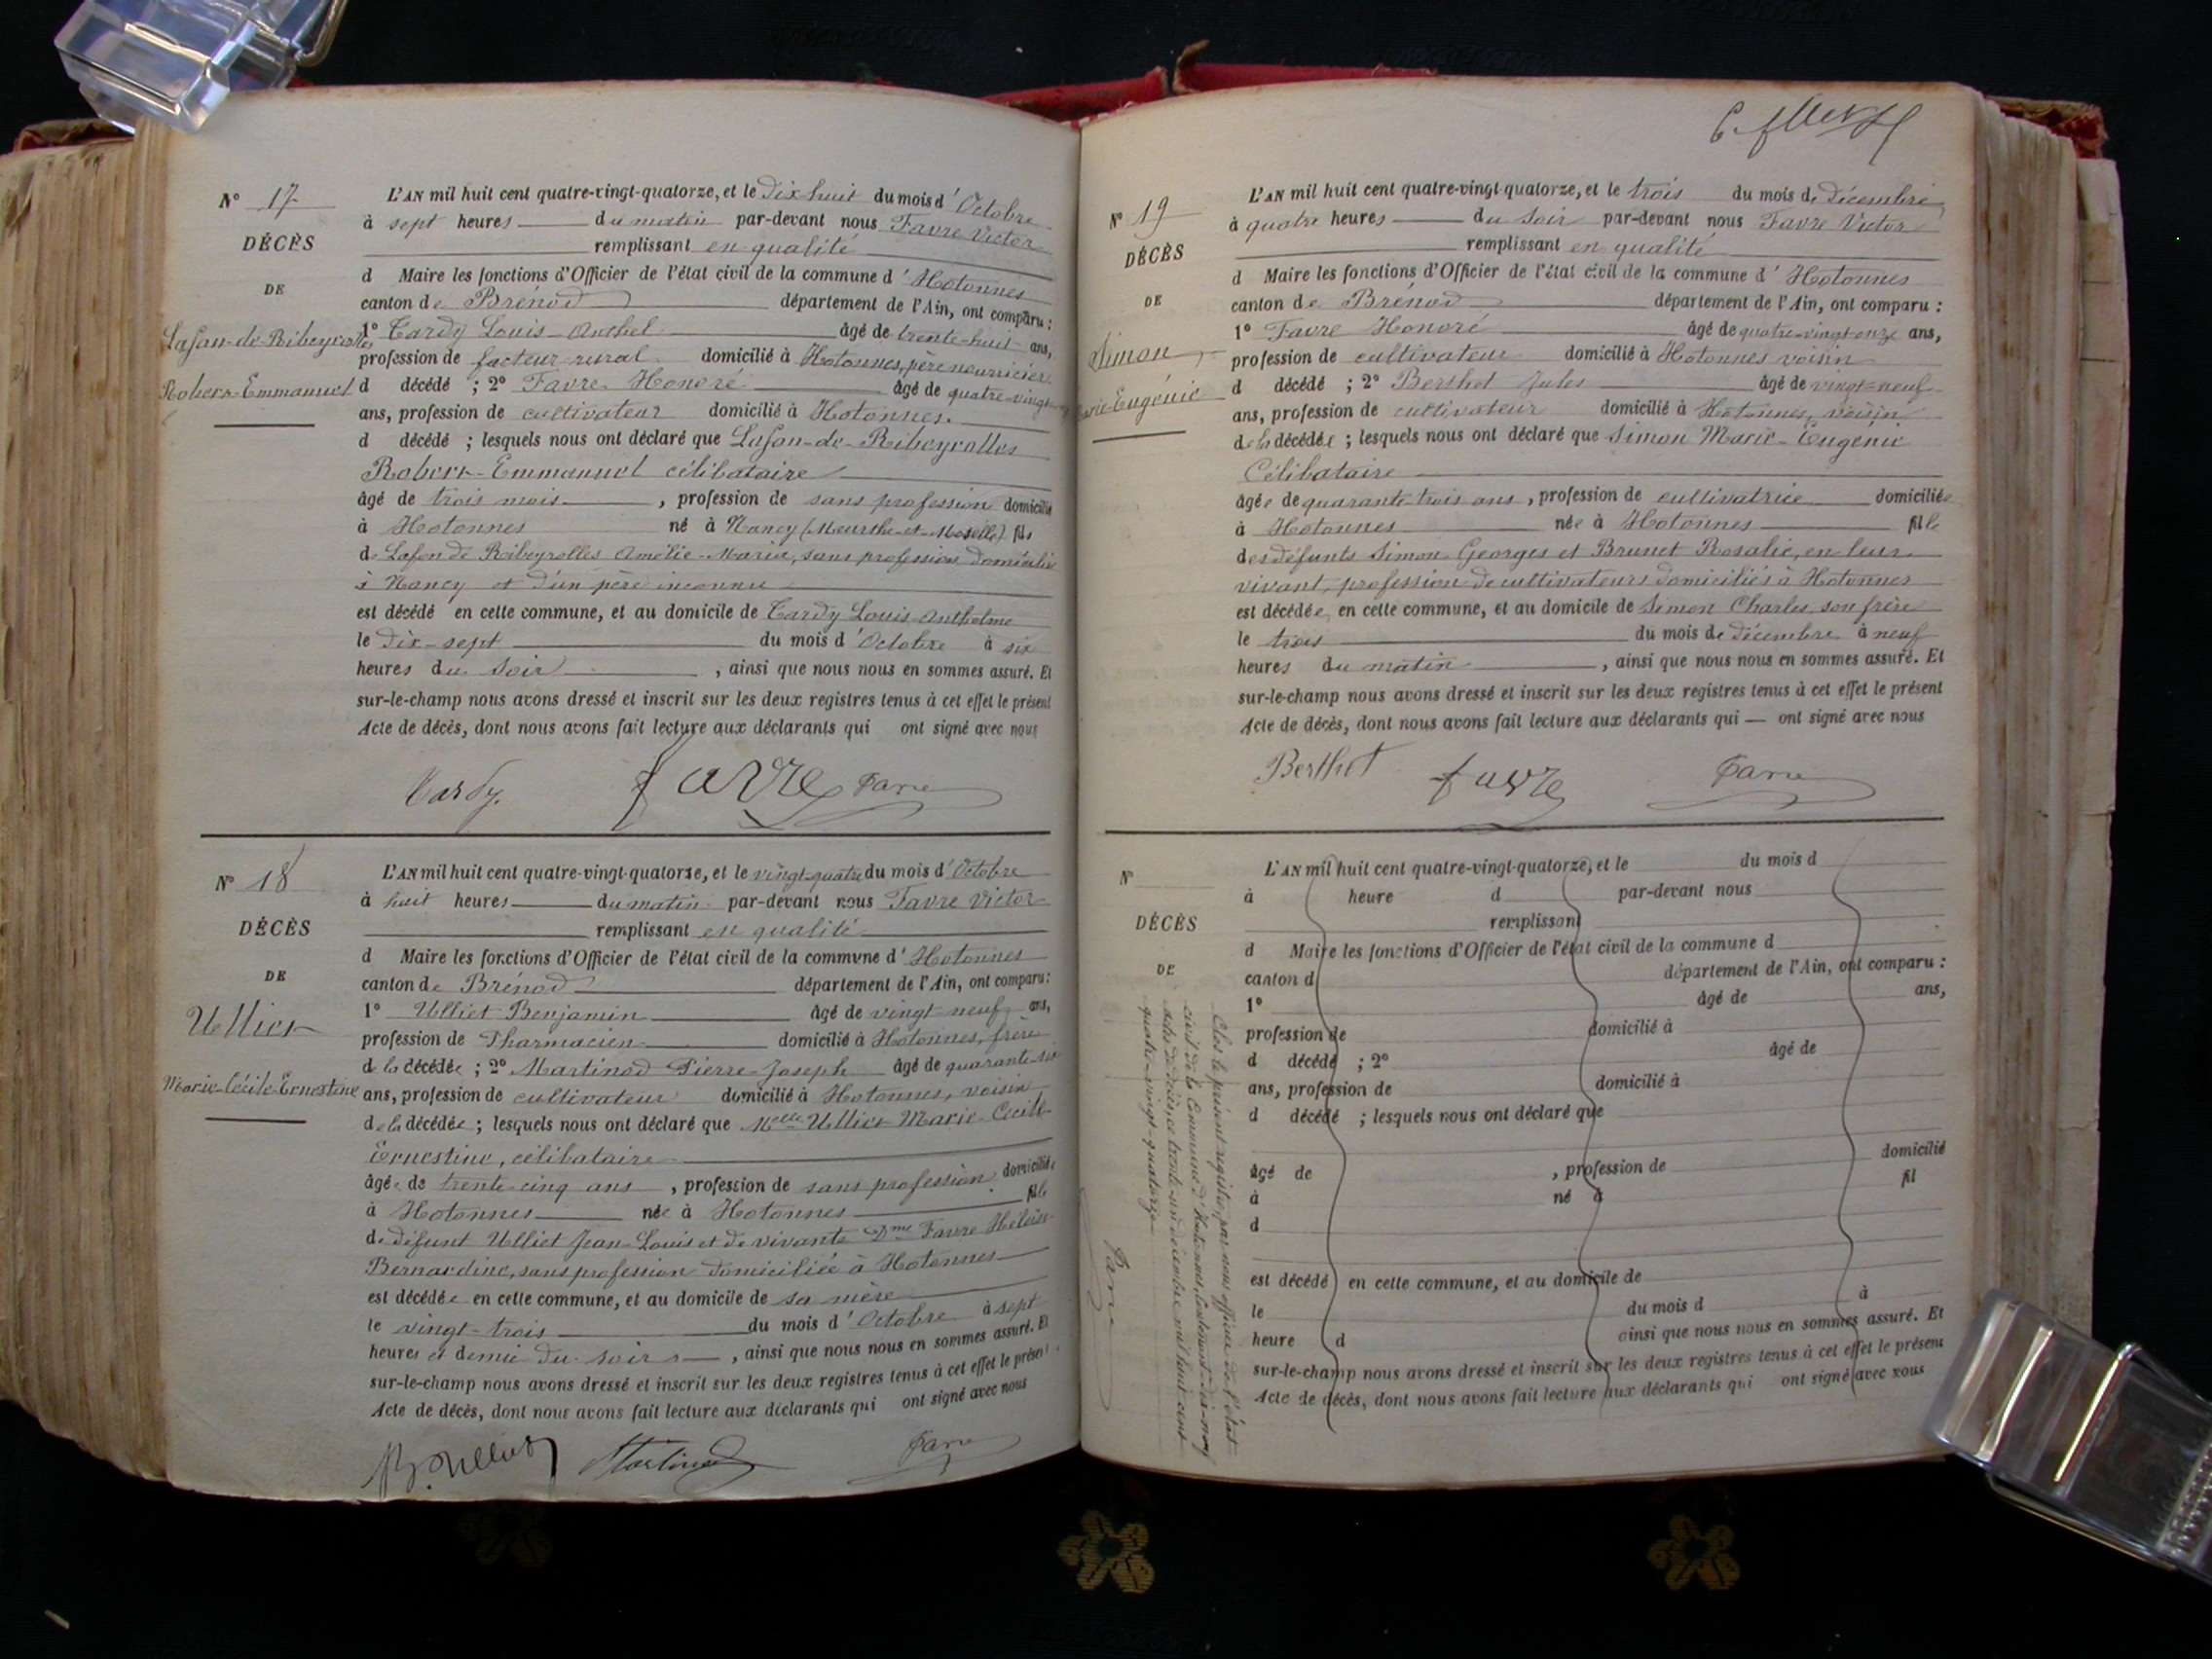 N° 17
DÉCÈS
DE
Lafon-de-Ribeyrolles
Robert-Emmanuel
L'AN mil huit cent quatre-vingt-quatorze, et le Dix huit du mois d' Octobre
à sept heures du matin par-devant nous Favre Victor
remplissant en qualité
d Maire les fonctions d'Officier de l'état civil de la commune d' Hotonnes
canton de Brénod département de l'Ain, ont comparu :
1° Tardy Louis-Anthel âgé de trente-huit ans,
profession de facteur rural domicilié à Hotonnes, père nourricier
d décédé ; 2° Favre Honoré âgé de quatre-vingt
ans, profession de cultivateur domicilié à Hotonnes.
d décédé ; lesquels nous ont déclaré que Lafon-de-Ribeyrolles
Robert-Emmanuel célibataire
âgé de trois mois , profession de sans profession domicilié
à Hotonnes né à Nancy (Meurthe-et-Moselle) fils
de Lafon de Ribeyrolles Amélie-Maria, sans profession domiciliée
à Nancy et d'un père inconnu
est décédé en cette commune, et au domicile de Tardy Louis Anthelme
le Dix-sept du mois d' Octobre à six
heures du soir , ainsi que nous nous en sommes assuré. Et
sur-le-champ nous avons dressé et inscrit sur les deux registres tenus à cet effet le présent
Acte de décès, dont nous avons fait lecture aux déclarants qui ont signé avec nous
Tardy. favre Favre
N° 18
DÉCÈS
DE
Ulliet
Marie-Cécile-Ernestine
L'AN mil huit cent quatre-vingt-quatorse, et le vingt-quatre du mois d' Octobre
à huit heures du matin par-devant nous Favre Victor
remplissant en qualité
d Maire les fonctions d'Officier de l'état civil de la commune d' Hotonnes
canton de Brénod département de l'Ain, ont comparu :
1° Ulliet Benjamin âgé de vingt neuf ans,
profession de Pharmacien domicilié à Hotonnes, frère
de la décédée ; 2° Martinod Pierre-Joseph âgé de quarante-six
ans, profession de cultivateur domicilié à Hotonnes, voisin
de la décédée ; lesquels nous ont déclaré que Melle Ulliet Marie-Cécile-
Ernestine, célibataire
âgée de trente-cinq ans , profession de sans profession domiciliée
à Hotonnes née à Hotonnes fille
de défunt Ulliet Jean-Louis et de vivante Dme Favre Héloïse-
Bernardine, sans profession domiciliée à Hotonnes
est décédée en cette commune, et au domicile de sa mère
le vingt-trois du mois d' Octobre à sept
heures et demie du soir , ainsi que nous nous en sommes assuré. Et
sur-le-champ nous avons dressé et inscrit sur les deux registres tenus à cet effet le présent
Acte de décès, dont nous avons fait lecture aux déclarants qui ont signé avec nous
B. Ulliet Martinod Favre
N° 19
DÉCÈS
DE
Simon
Marie-Eugénie
L'AN mil huit cent quatre-vingt-quatorze, et le trois du mois de Décembre
à quatre heures du soir par-devant nous Favre Victor
remplissant en qualité
d Maire les fonctions d'Officier de l'état civil de la commune d' Hotonnes
canton de Brénod département de l'Ain, ont comparu :
1° Favre Honoré âgé de quatre-vingt-onze ans,
profession de cultivateur domicilié à Hotonnes voisin
d décédé ; 2° Berthet Jules âgé de vingt-neuf
ans, profession de cultivateur domicilié à Hotonnes, voisin
de la décédée ; lesquels nous ont déclaré que Simon Marie-Eugénie
Célibataire
âgée de quarante-trois ans , profession de cultivatrice domiciliée
à Hotonnes née à Hotonnes fille
des défunts Simon Georges et Brunet Rosalie, en leur
vivant, profession de cultivateurs domiciliés à Hotonnes
est décédée en cette commune, et au domicile de Simon Charles, son frère
le trois du mois de décembre à neuf
heures du matin , ainsi que nous nous en sommes assuré. Et
sur-le-champ nous avons dressé et inscrit sur les deux registres tenus à cet effet le présent
Acte de décès, dont nous avons fait lecture aux déclarants qui — ont signé avec nous
Berthet favre Favre
N°
DÉCÈS
DE
L'AN mil huit cent quatre-vingt-quatorze, et le du mois d
à heure d par-devant nous
remplissant
d Maire les fonctions d'Officier de l'état civil de la commune d
canton d département de l'Ain, ont comparu :
1° âgé de ans,
profession de domicilié à
d décédé ; 2° âgé de
ans, profession de domicilié à
d décédé ; lesquels nous ont déclaré que
âgé de , profession de domicilié
à né à fil
d
est décédé en cette commune, et au domicile de
le du mois d à
heure d ainsi que nous nous en sommes assuré. Et
sur-le-champ nous avons dressé et inscrit sur les deux registres tenus à cet effet le présent
Acte de décès, dont nous avons fait lecture aux déclarants qui ont signé avec nous
Clos le présent registre, par nous officier de l'état
civil de la Commune d'Hotonnes, contenant dix-neuf
actes de décès, ce trente-un décembre mil huit cent
quatre-vingt-quatorze
Favre